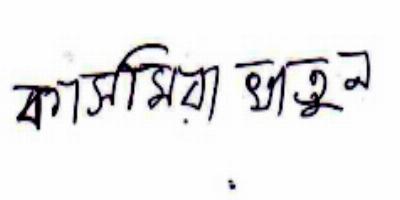 কাসমিরা খাতুন